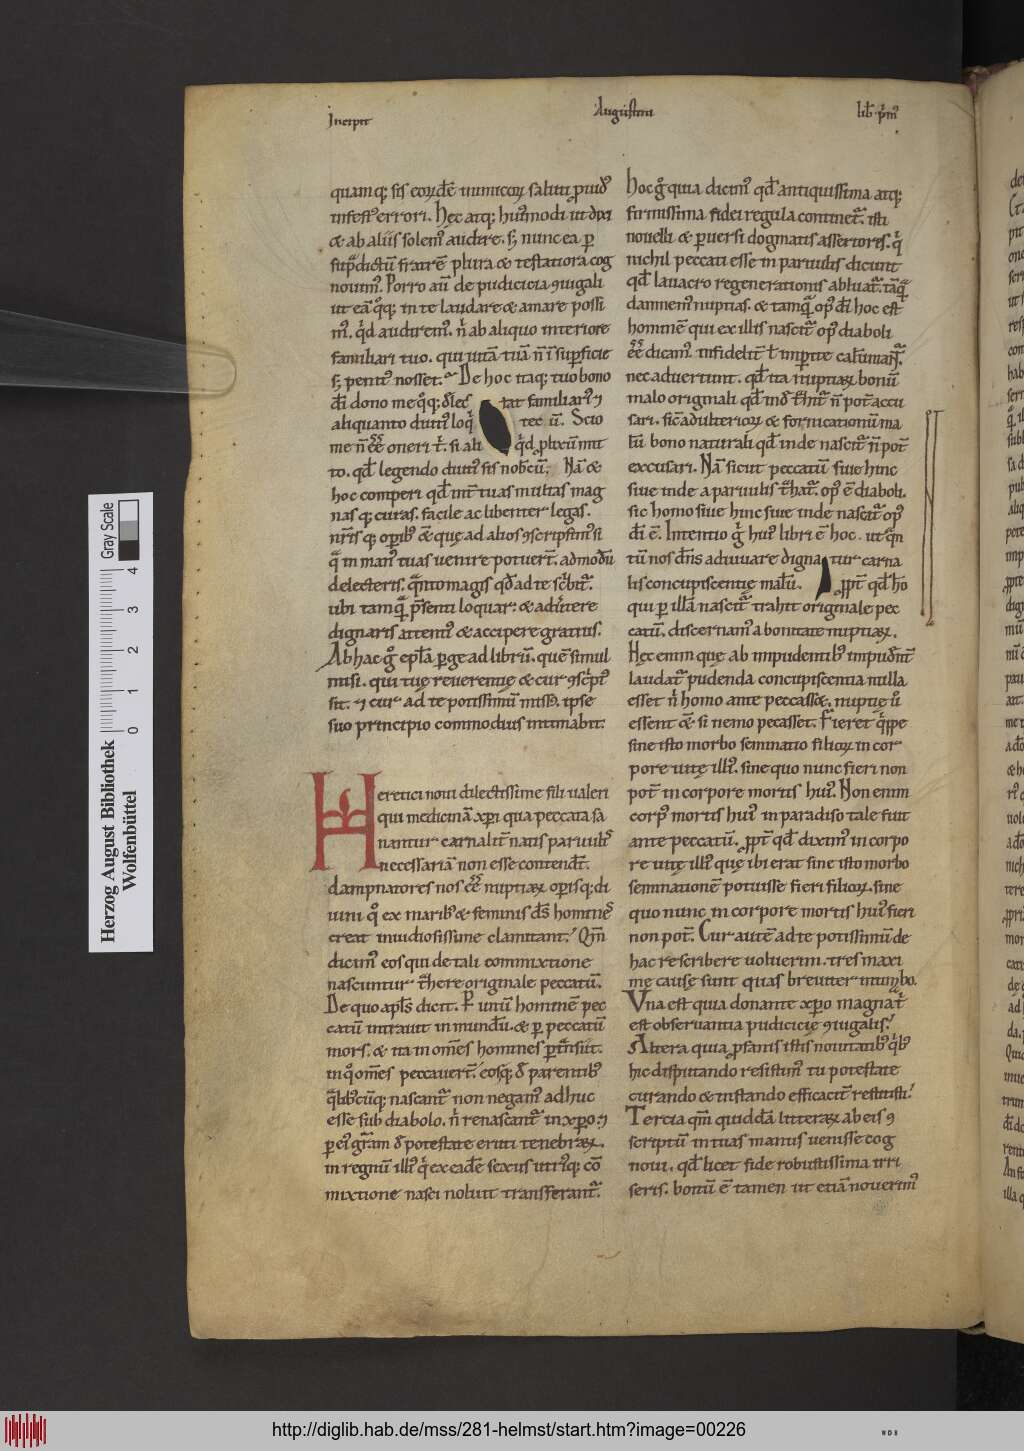 Incipit
Augustini
lib. p̄mꝰ
quamq; sis eorūdē inimicorū saluti prouidꝰ
infestꝰ errori. Hęc atq; huiꝰmodi ut dixi
& ab aliis solemꝰ audire. s; nunc ea p
sup̄dictū fratrē plura & testatiora cog
nouimꝰ. Porro aū de pudicicia ꝯiugali
ut eā qͦq; in te laudare & amare possi
mꝰ. q̇d audiremꝰ. n̄ ab aliquo interiore
familiari tuo. qui uitā tuā n̄ ī superficie
s; penitꝰ nosset. De hoc itaq; tuo bono
dī dono me qͦq; delec tat familiariꝰ ⁊
aliquanto diutiꝰ loq̇ tecū. Scio
me n̄ eē̄ oneri t̄. si ali q̇d plixū mit
to. qd̄ legendo diutiꝰ sis nobcū. Nā &
hoc comperi qd̄ int̄ tuas multas mag
nas q; curas. facile ac libenter legas.
nr̄isq; operibꝰ &ē que ad alios ꝯscripsimꝰ si
q̄ in manꝰ tuas uenire potuerī̄. admodū
delecteris. q̄ntomagis qd̄ ad te scbit̄.
ubi tamq̄ p̄senti loquar: & aduertere
dignaris attentiꝰ & accipere gratiꝰ.
Ab hac gͦ epl̄a perge ad librū. quē simul
misi. qui tuę reuerentię & cur ꝯscptꝰ
sit. ⁊ cur ad te potissimū missꝰ. ipse
suo principio commodius intimabit.
Heretici noui dilectissime fili ualeri
qui medicinā xpi qua peccata sa
nantur carnalit̄ natis paruulis
necessariā non esse contendt̄.
dampnatores nos eē̄ nuptiarū operisq; di
uini qͦ ex maribꝰ & feminis ds̄ hominē
creat inuidiosissime clamitant. Qm̄
dicimꝰ eos qui de tali commixtione
nascuntur t̄here originale peccatū.
De quo apls̄ dicit. P̄ unū hominē pec
catū intrauit in mundū. & p peccatū
mors. & ita in omēs homines ptn̄siit.
in qͦ omēs peccauert̄. eosq; de parentibꝰ
q̄libꝰcūq; nascant̄ non negamꝰ adhuc
esse sub diabolo. n̄ renascant̄ in xpo. ⁊
p eiꝰ gr̄am de potestate eruti tenebrarū.
in regnū illiꝰ q̇ ex eadē sexus utriꝰq; cō
mixtione nasci noluit transferant̄.
Hoc gͦ quia dicimꝰ qd̄ antiquissima atq;
firmissima fidei regula continet̄. isti
nouelli & puersi dogmatis assertores. q̇
nichil peccati esse in paruulis dicunt
qd̄ lauacro regenerationis abluat̄. tāq̄
damnemꝰ nuptias. & tamq̄ opꝰ dī hoc est
hominē qui ex illis nascit̄ opꝰ diaboli
eē̄ dicamꝰ infidelit̄ ł inperite calūniant̄.
nec aduertunt. qd̄ ita nuptiarū bonū
malo originali qd̄ inde t̄hit̄ n̄ pot̄ accu
sari. sic̄ adulteriorū & fornicationū ma
lū bono naturali qd̄ inde nascit̄ n̄ pot̄
excusari. Nā sicut peccatū siue hinc
siue inde a paruulis t̄hat̄. opꝰ ē diaboli.
sic homo siue hinc siue inde nascat̄ opꝰ
dī ē. Intentio ġ huiꝰ libri ē hoc. ut qn̄
tū nos dn̄s adiuuare dignatur carna
lis concupiscentię malū. ppt̄ qd̄ hō
qui p illā nascit̄ trahit originale pec
catū. discernamꝰ a bonitate nuptiarū.
Hęc enim quę ab inpudentibꝰ inpudent̄
laudat̄ pudenda concupiscentia nulla
esset n̄ homo ante peccasset. nuptię uͦ
essent &ē si nemo pecasset. Fieret q̇ppe
sine isto morbo seminatio filiorū in cor
pore uitę illiꝰ. sine quo nunc fieri non
pot̄ in corpore mortis huiꝰ. Non enim
corpꝰ mortis huiꝰ in paradiso tale fuit
ante peccatū. ppt̄ qd̄ diximꝰ in corpo
re uitę illiꝰ quę ibi erat sine isto morbo
seminationē potuisse fieri filiorū. sine
quo nunc in corpore mortis huiꝰ fieri
non pot̄. Cur autē ad te potissimū de
hac re scribere uoluerim. tres maxi
mę causę sunt quas breuiter intimabo.
Vna est quia donante xpo magna t̄
est obseruantia pudicicię ꝯiugalis.
Altera quia pfanis istis nouitatibꝰ q̇bꝰ
hic disputando resistimꝰ tu potestate
curando & instando efficacit̄ restitisti.
Tercia qm̄ quiddā litterarū ab eis ꝯ
scriptū in tuas manus uenisse cog
noui. qd̄ licet fide robustissima irri
seris. bonū ē tamen ut etiā nouerimꝰ
Herzog August Bibliothek
Wolfenbüttel
Gray Scale
0 1 2 3 4
http://diglib.hab.de/mss/281-helmst/start.htm?image=00226
WDB